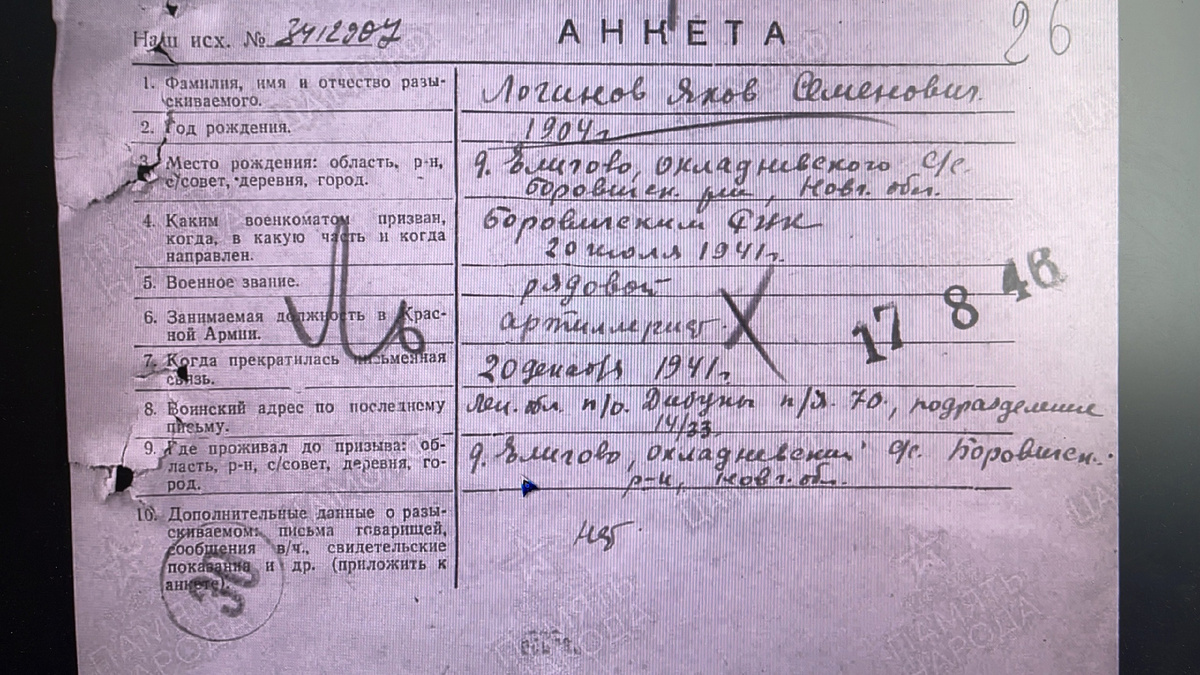 26
Наш исх. № 3412907 АНКЕТА
1. Фамилия, имя и отчество разы-
скиваемого.
Логинов Яков Семенович.
2. Год рождения.
1904 г.
3. Место рождения: область, р-н,
с/совет, деревня, город.
д. Елигово, Окладневского с/с.
Боровичск. р-н, Новг. обл.
4. Каким военкоматом призван,
когда, в какую часть и когда
направлен.
Боровичским
20 июля 1941 г.
5. Военное звание.
рядовой
6. Занимаемая должность в Крас-
ной Армии.
артиллерист.
17 8 46
7. Когда прекратилась письменная
связь.
20 декабря 1941 г.
8. Воинский адрес по последнему
письму.
Лен. обл. п/о. Дибуны п/я. 70, подразделение
14/33.
9. Где проживал до призыва: об-
ласть, р-н, с/совет, деревня, го-
род.
д. Елигово, Окладневский с/с. Боровичск.
р-н, Новг. обл.
10. Дополнительные данные о разы-
скиваемом: письма товарищей,
сообщения в/ч., свидетельские
показания и др. (приложить к
анкете).
нет.
30
ПАМЯТЬ
НАРОДА
ЦАМО РФ